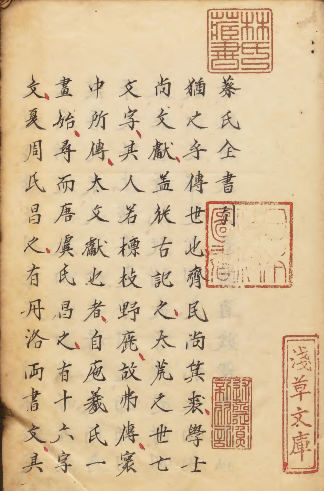 林氏
藏書
蔡氏全書序
猶之乎傳世也齊民尚箕裘學士
尚文獻蓋從古記之太荒之世亡
文字其人若標枝野鹿故弗傳寰
中所傳太文獻也者自庖羲氏一
畫始尋而唐虞氏昌之有十六字
文夏周氏昌之有丹洛兩書文具
淺草文庫